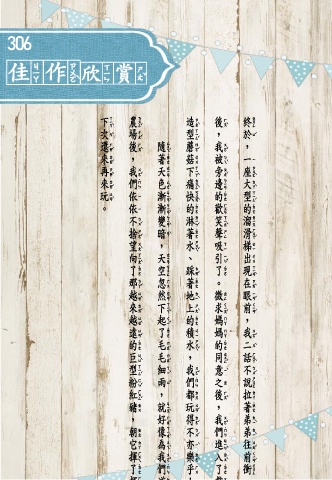 306
佳作欣賞
終於，一座大型的溜滑梯出現在眼前，我二話不說拉著弟弟往前衝
後，我被旁邊的歡笑聲吸引了。徵求媽媽的同意之後，我們進入了
造型蘑菇下痛快的淋著水、踩著地上的積水，我們都玩得不亦樂乎
隨著天色漸漸變暗，天空忽然下起了毛毛細雨，就好像為我們
農場後，我們依依不捨望向了那越來越遠的巨型粉紅豬，朝它揮了
下次還來再來玩。